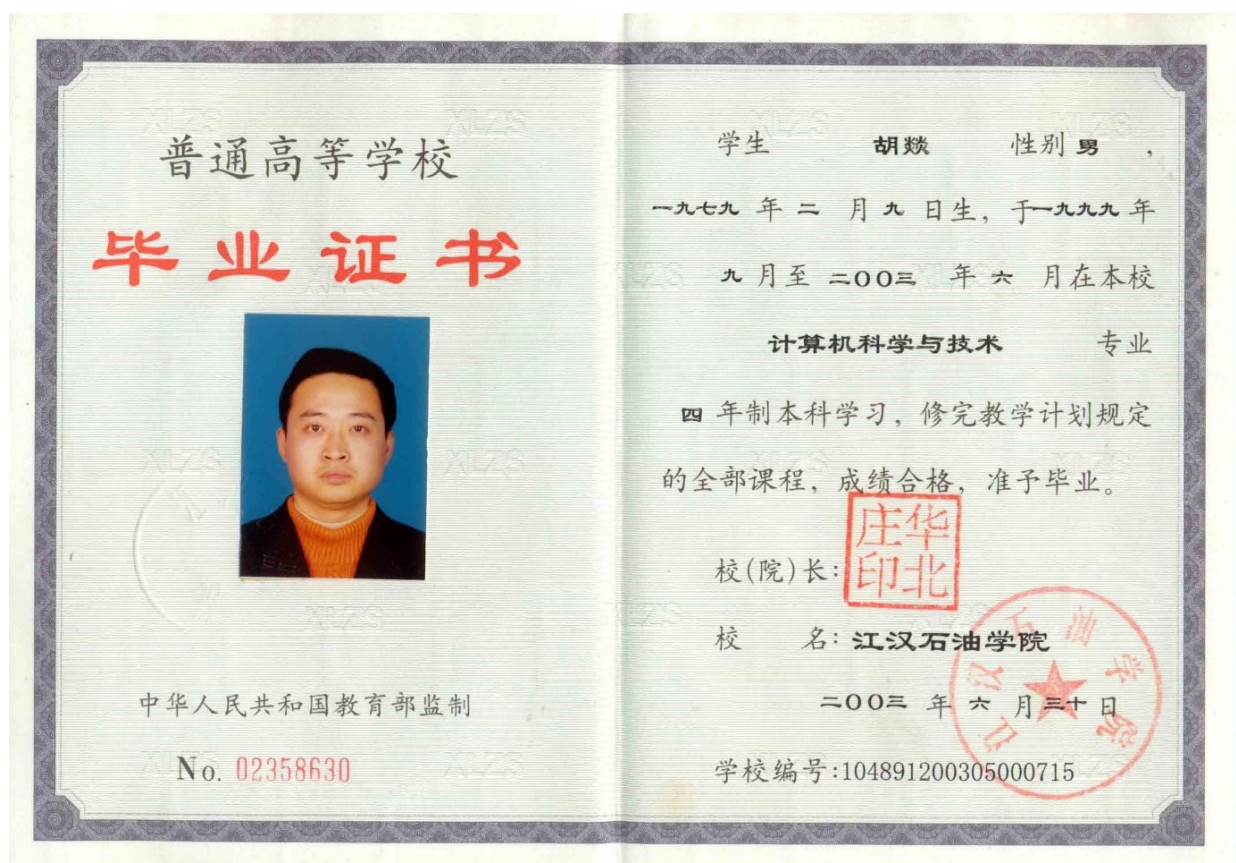 普通高等学校
毕业证书
中华人民共和国教育部监制
No. 02358630
学生 胡燚 性别 男 ，
一九七九 年 二 月 九 日生，于一九九九 年
九 月至 二00三 年 六 月在本校
计算机科学与技术 专业
四 年制本科学习，修完教学计划规定
的全部课程，成绩合格，准予毕业。
校(院)长：
华北庄印
校 名：江汉石油学院
二00三 年 六 月 三十 日
江汉石油学院
学校编号:104891200305000715
XLZS